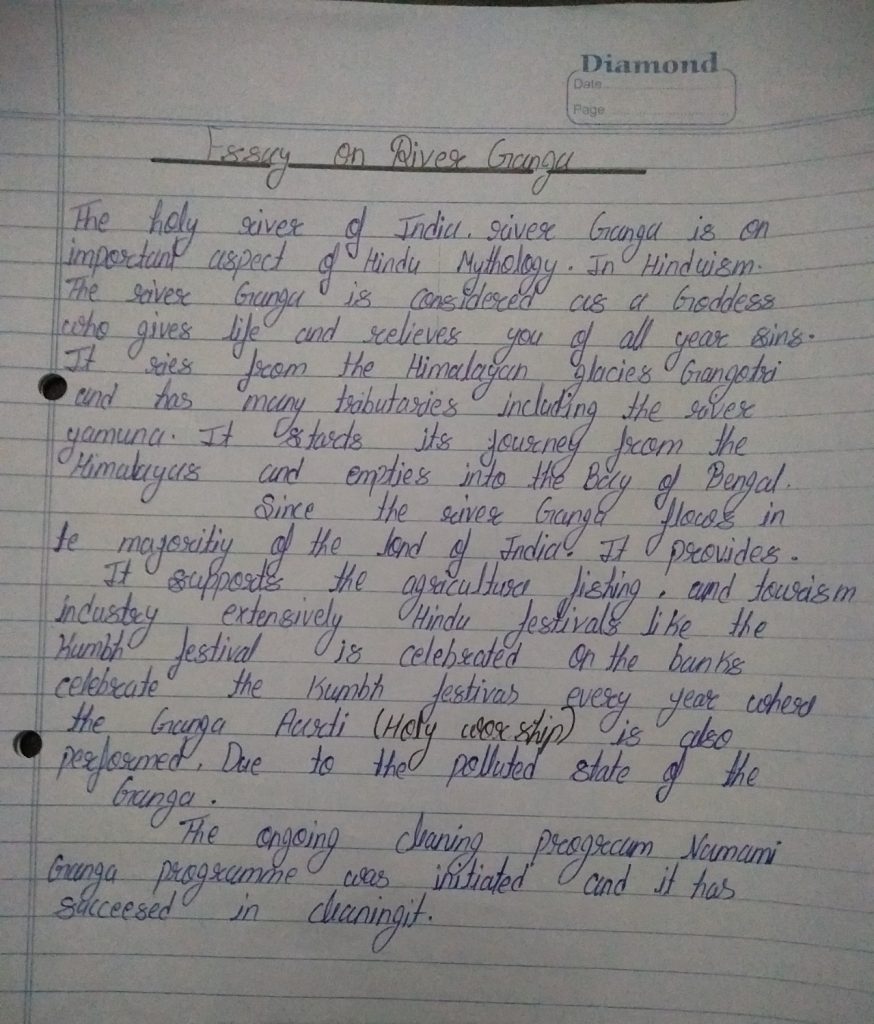 Diamond
Date
Page
Essay on River Ganga
The holy river of India. river Ganga is on
important aspect of Hindu Mythology. In Hinduism.
The river Ganga is considered as a Goddess
who gives life and relieves you of all year sins.
It ries from the Himalayan glacies Gangotri
and has many tributaries including the river
yamuna. It starts its journey from the
Himalayas and empties into the Bay of Bengal.
Since the river Ganga flows in
te majoritiy of the lond of India. It provides.
It supports the agricultura fishing, and tourism
industry extensively Hindu festivals like the
Kumbh festival is celebrated on the banks
celebrate the Kumbh festivas every year where
the Ganga Aarti (Holy worship) is also
performed. Due to the polluted state of the
Ganga.
The ongoing cleaning program Namami
Ganga programme was initiated and it has
succeesed in cleaningit.